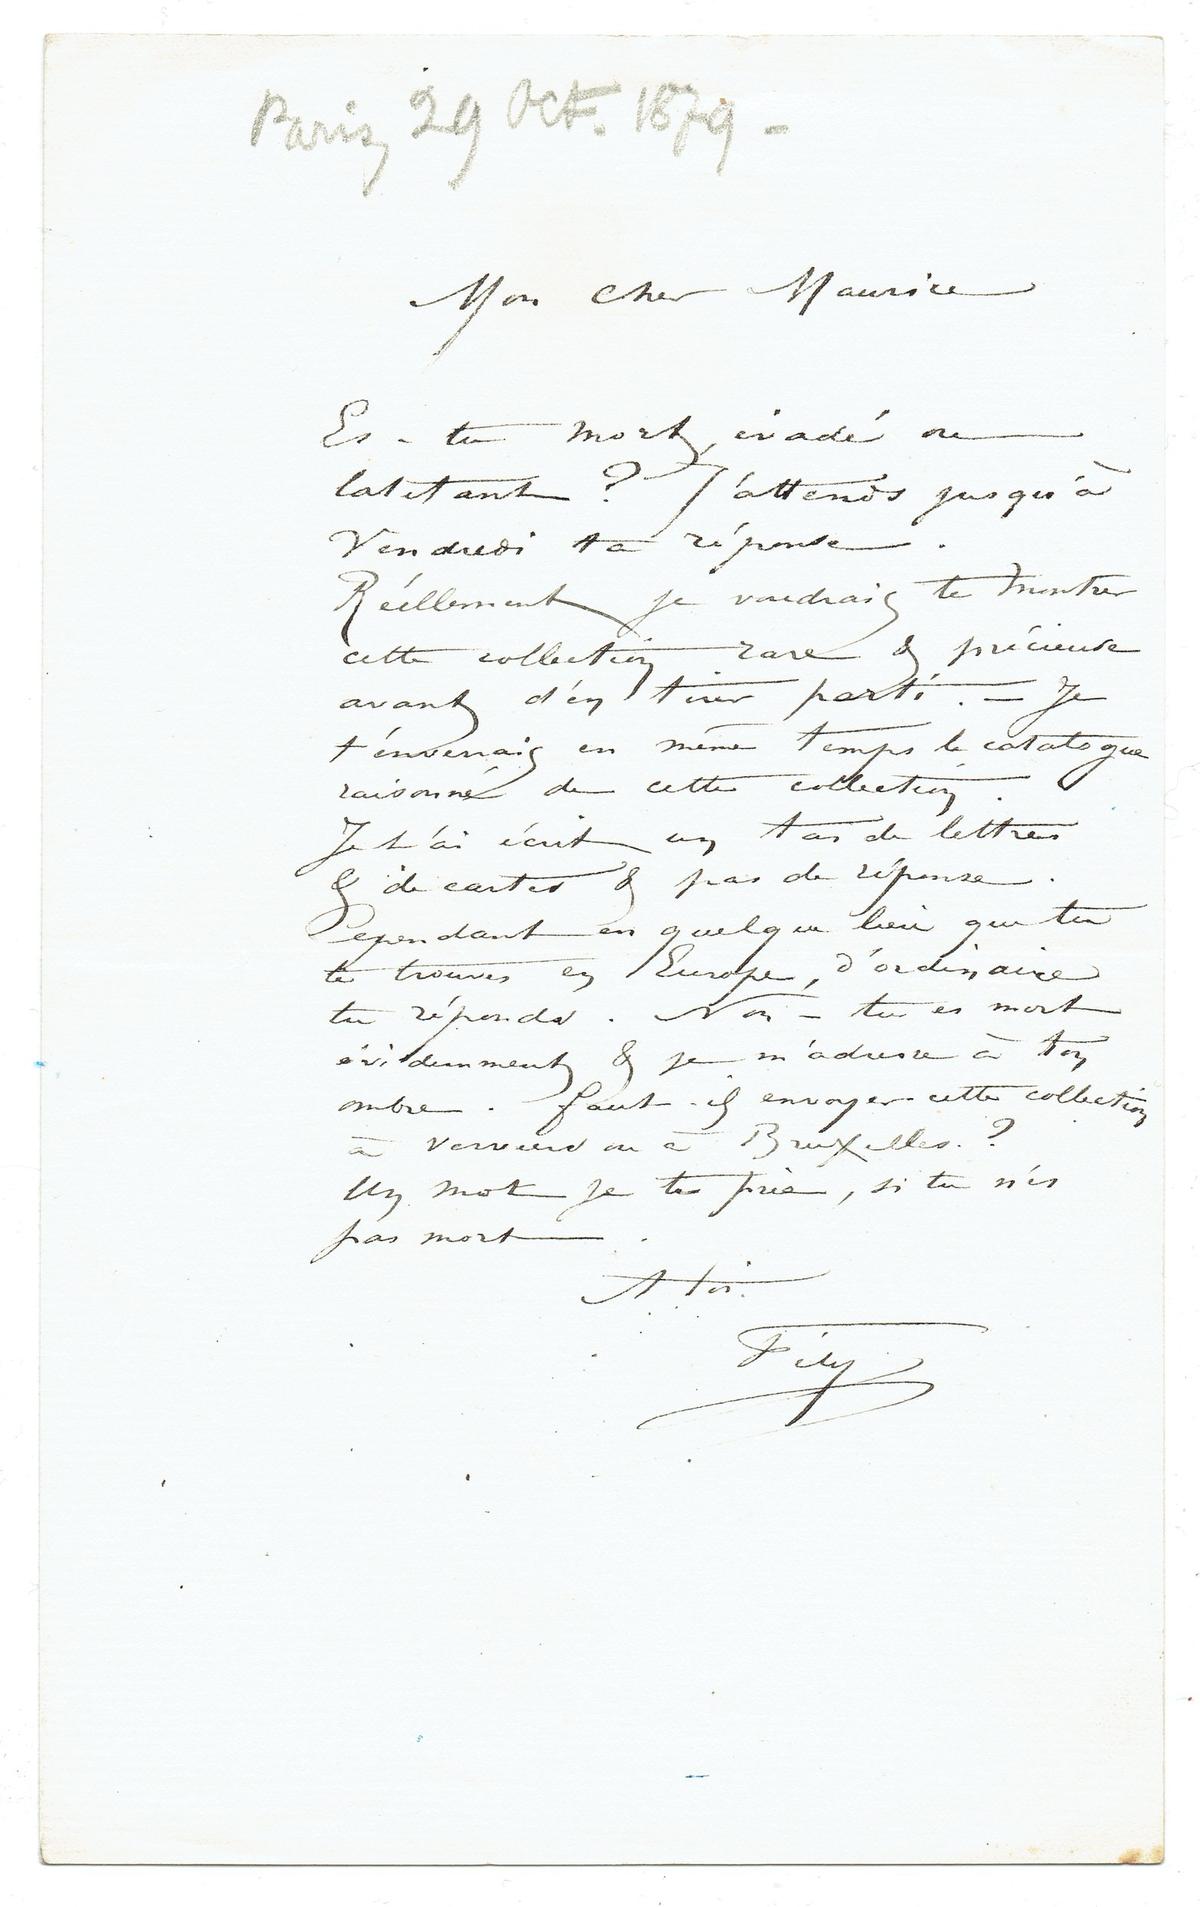 Paris, 29 Oct. 1879 -
Mon cher Maurice
Es-tu mort, évadé ou
latitant ? J'attends jusqu'à
Vendredi ta réponse.
Réellement je voudrais te montrer
cette collection rare & précieuse
avant d'en tirer parti. — Je
t'enverrais en même temps le catalogue
raisonné de cette collection.
Je t'ai écrit un tas de lettres
& de cartes & pas de réponse.
Cependant en quelque lieu que tu
te trouves en Europe, d'ordinaire
tu réponds. Non - tu es mort
évidemment & je m'adresse à ton
ombre. faut-il envoyer cette collection
à Verviers ou à Bruxelles. ?
Un mot je te prie, si tu n'es
pas mort.
A toi.
Fély